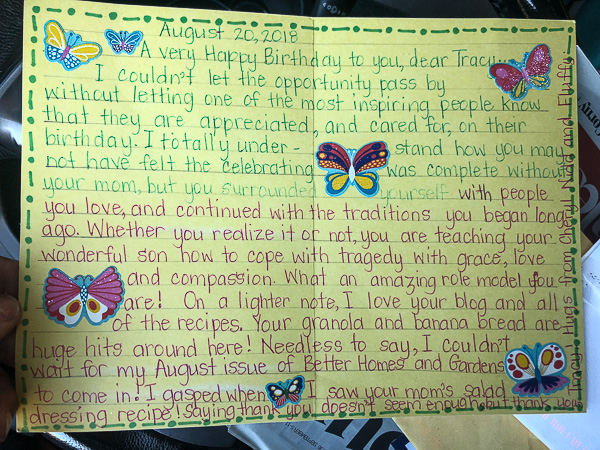 August 20, 2018
A very Happy Birthday to you, dear Tracy...
I couldn't let the opportunity pass by
without letting one of the most inspiring people know
that they are appreciated, and cared for, on their
birthday. I totally under- stand how you may
not have felt the celebrating was complete without
your mom, but you surrounded yourself with people
you love, and continued with the traditions you began long
ago. Whether you realize it or not, you are teaching your
wonderful son how to cope with tragedy with grace, love
and compassion. What an amazing role model you
are! On a lighter note, I love your blog and all
of the recipes. Your granola and banana bread are
huge hits around here! Needless to say, I couldn't
wait for my August issue of Better Homes and Gardens
to come in! I gasped when I saw your mom's salad
dressing recipe! Saying thank you doesn't seem enough, but thank you,
Tracy! Hugs from Cheryl, and Fluffy